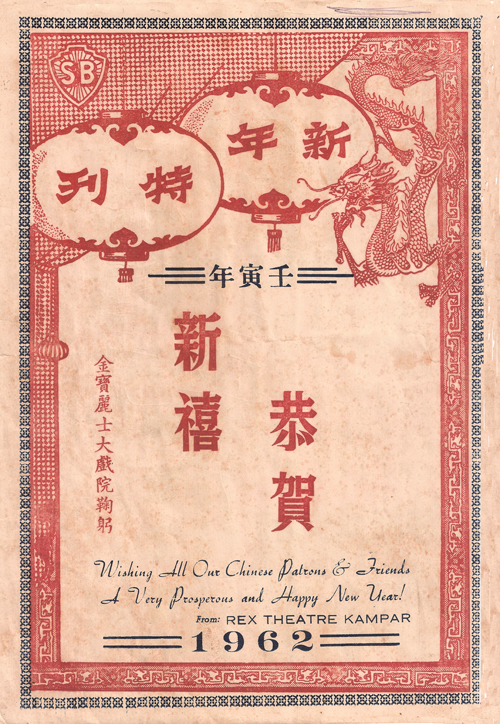 SB
新年
特刊
壬寅年
恭賀
新禧
金寶麗士大戲院鞠躬
Wishing All Our Chinese Patrons & Friends
A Very Prosperous and Happy New Year!
From: REX THEATRE KAMPAR
1962